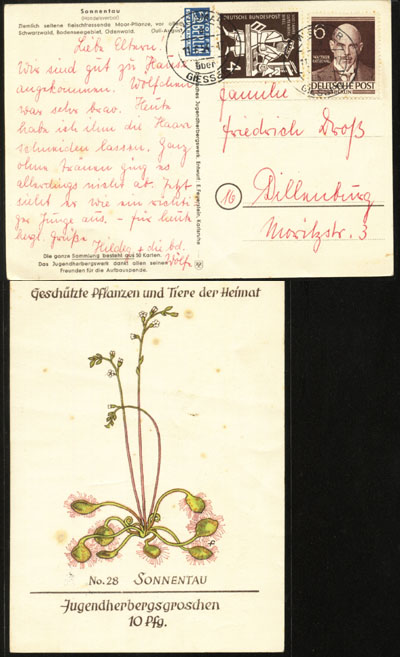 Sonnentau
(Handelsverbot)
Ziemlich seltene fleischfressende Moor-Pflanze, vor allem
Schwarzwald, Bodenseegebiet, Odenwald.
Liebe Eltern!
Wir sind gut zu Hause
angekommen. Wölfchen
war sehr brav. Heute
habe ich ihm die Haare
schneiden lassen. Ganz
ohne Tränen ging es
allerdings nicht ab. Jetzt
sieht er wie ein richti-
ger Junge aus. – Für heute
herzl. Grüße
Hildeg + die bd.
Wölfe
Die ganze Sammlung besteht aus 50 Karten.
Das Jugendherbergswerk dankt allen seinen
Freunden für die Aufbauspende.
Jugendherbergswerk. Entwurf: E. Feyerstein, Karlsruhe
NOTOPFER
2
BERLIN
DEUTSCHE BUNDESPOST
4
6
DEUTSCHE POST
über
GIESSEN
Familie
Friedrich Droß
16
Dillenburg
Moritzstr. 3
Geschützte Pflanzen und Tiere der Heimat
No. 28 SONNENTAU
Jugendherbergsgroschen
10 Pfg.